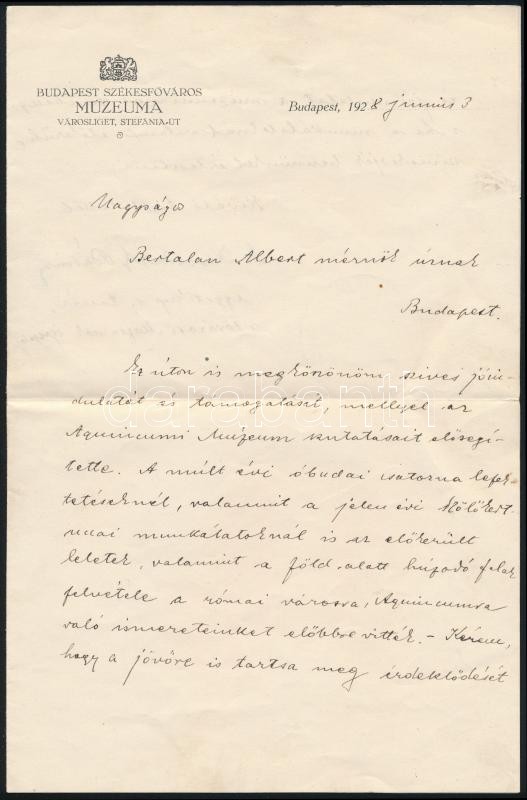 BUDAPEST SZÉKESFŐVÁROS
MÚZEUMA
VÁROSLIGET, STEFÁNIA-ÚT
Budapest, 1928 junius 3
Nagyságos
Bertalan Albert mérnök úrnak
Budapest.
Ez úton is megköszönöm szives jóin-
dulatát és támogatását, mellyel az
Aquincumi Múzeum kutatásait elősegí-
tette. A múlt évi óbudai csatorna lefek-
tetéseknél, valamint a jelen évi
utcai munkálatoknál is az előkerült
leletek, valamint a föld alatt húzódó falak
felvétele a római városra, Aquincumra
való ismereteinket előbbre vitték. - Kérem,
hogy a jövőre is tartsa meg érdeklődését
darabanth